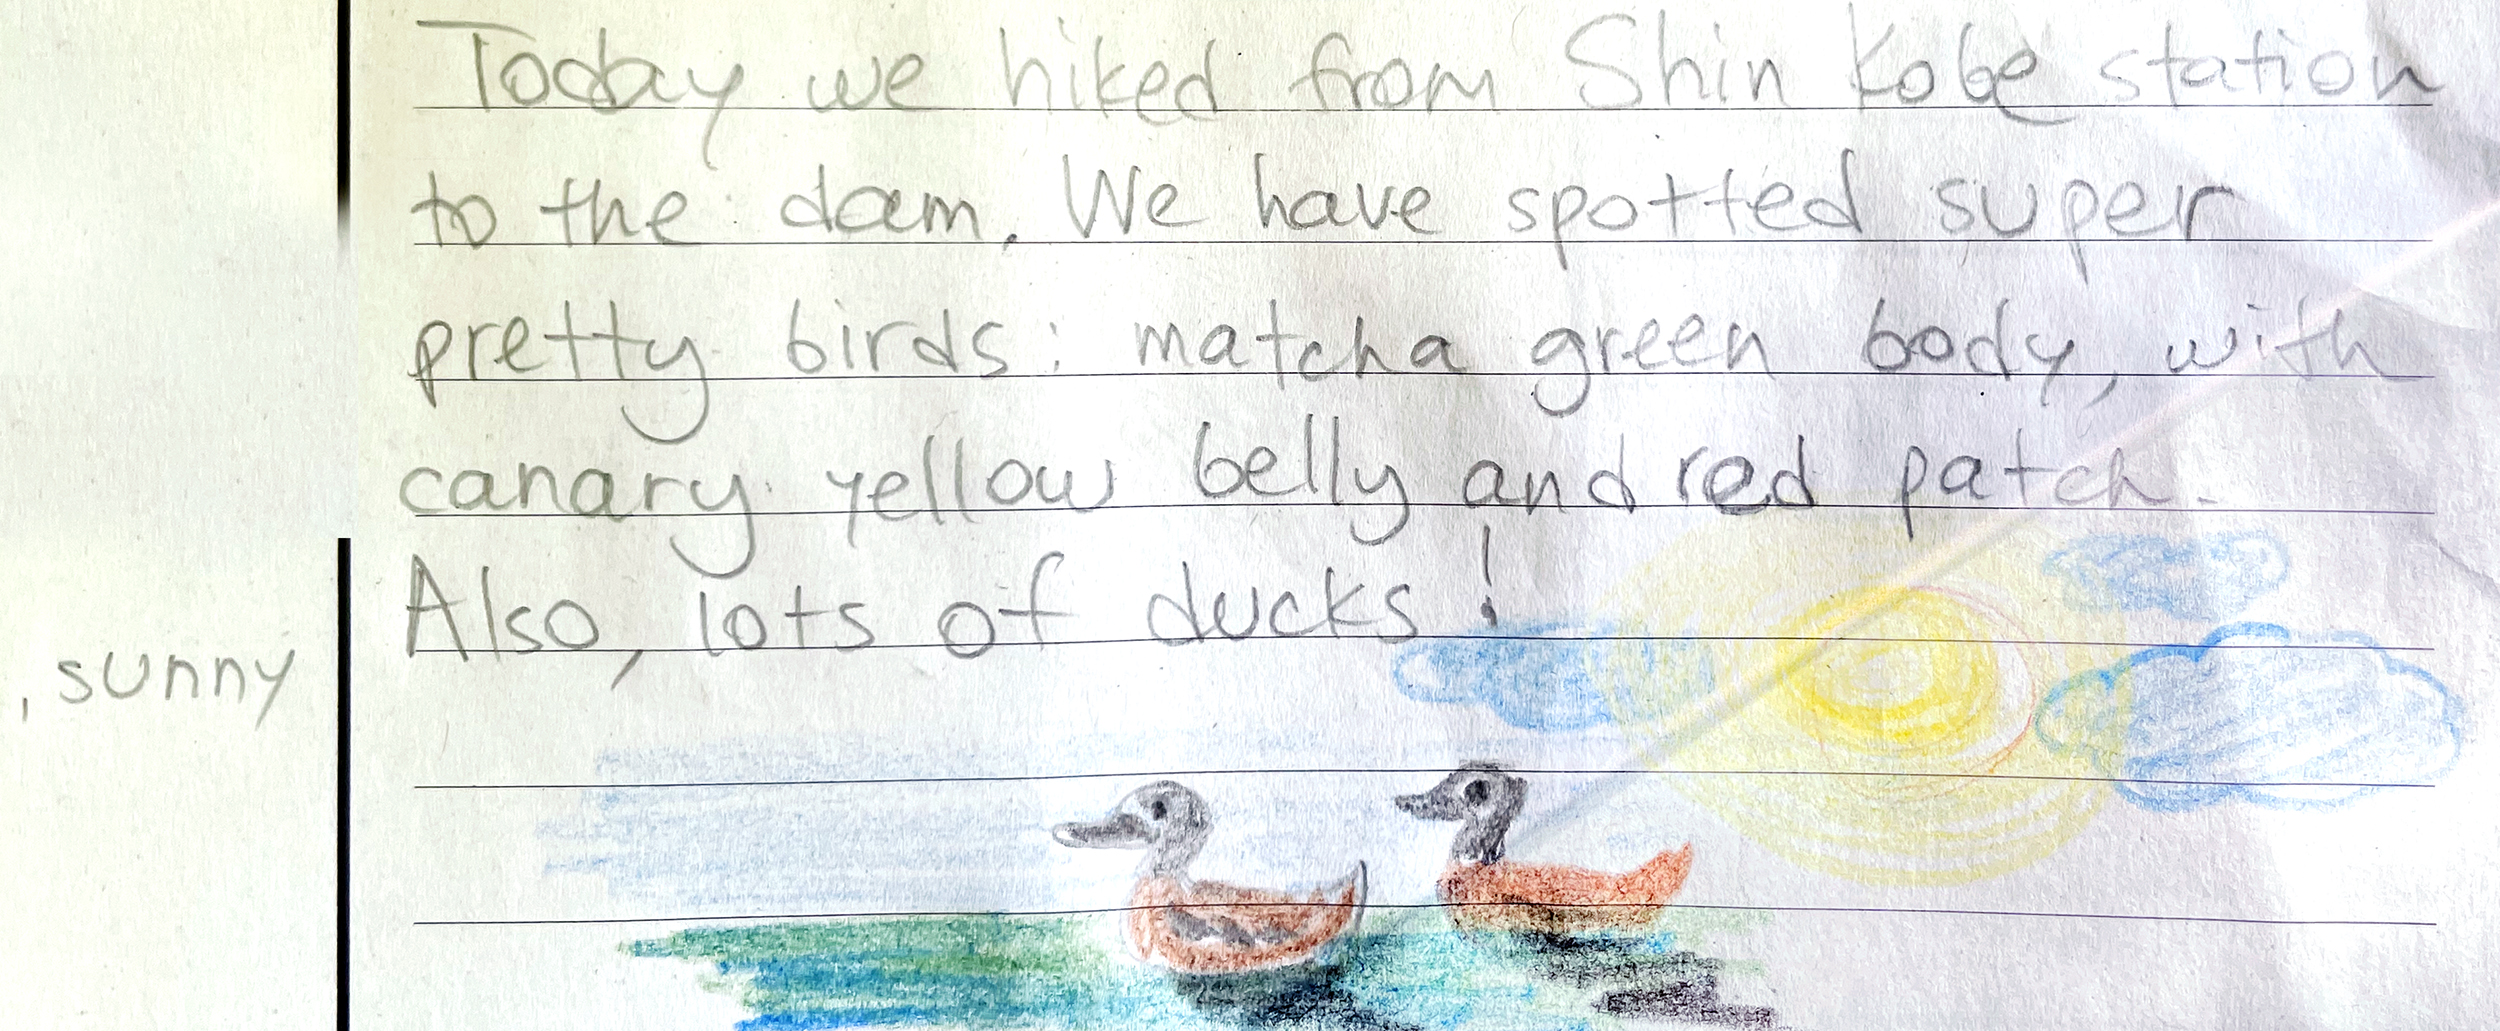 Today we hiked from Shin Kobe station
to the dam. We have spotted super
pretty birds: matcha green body, with
canary yellow belly and red patch.
Also, lots of ducks!
, sunny